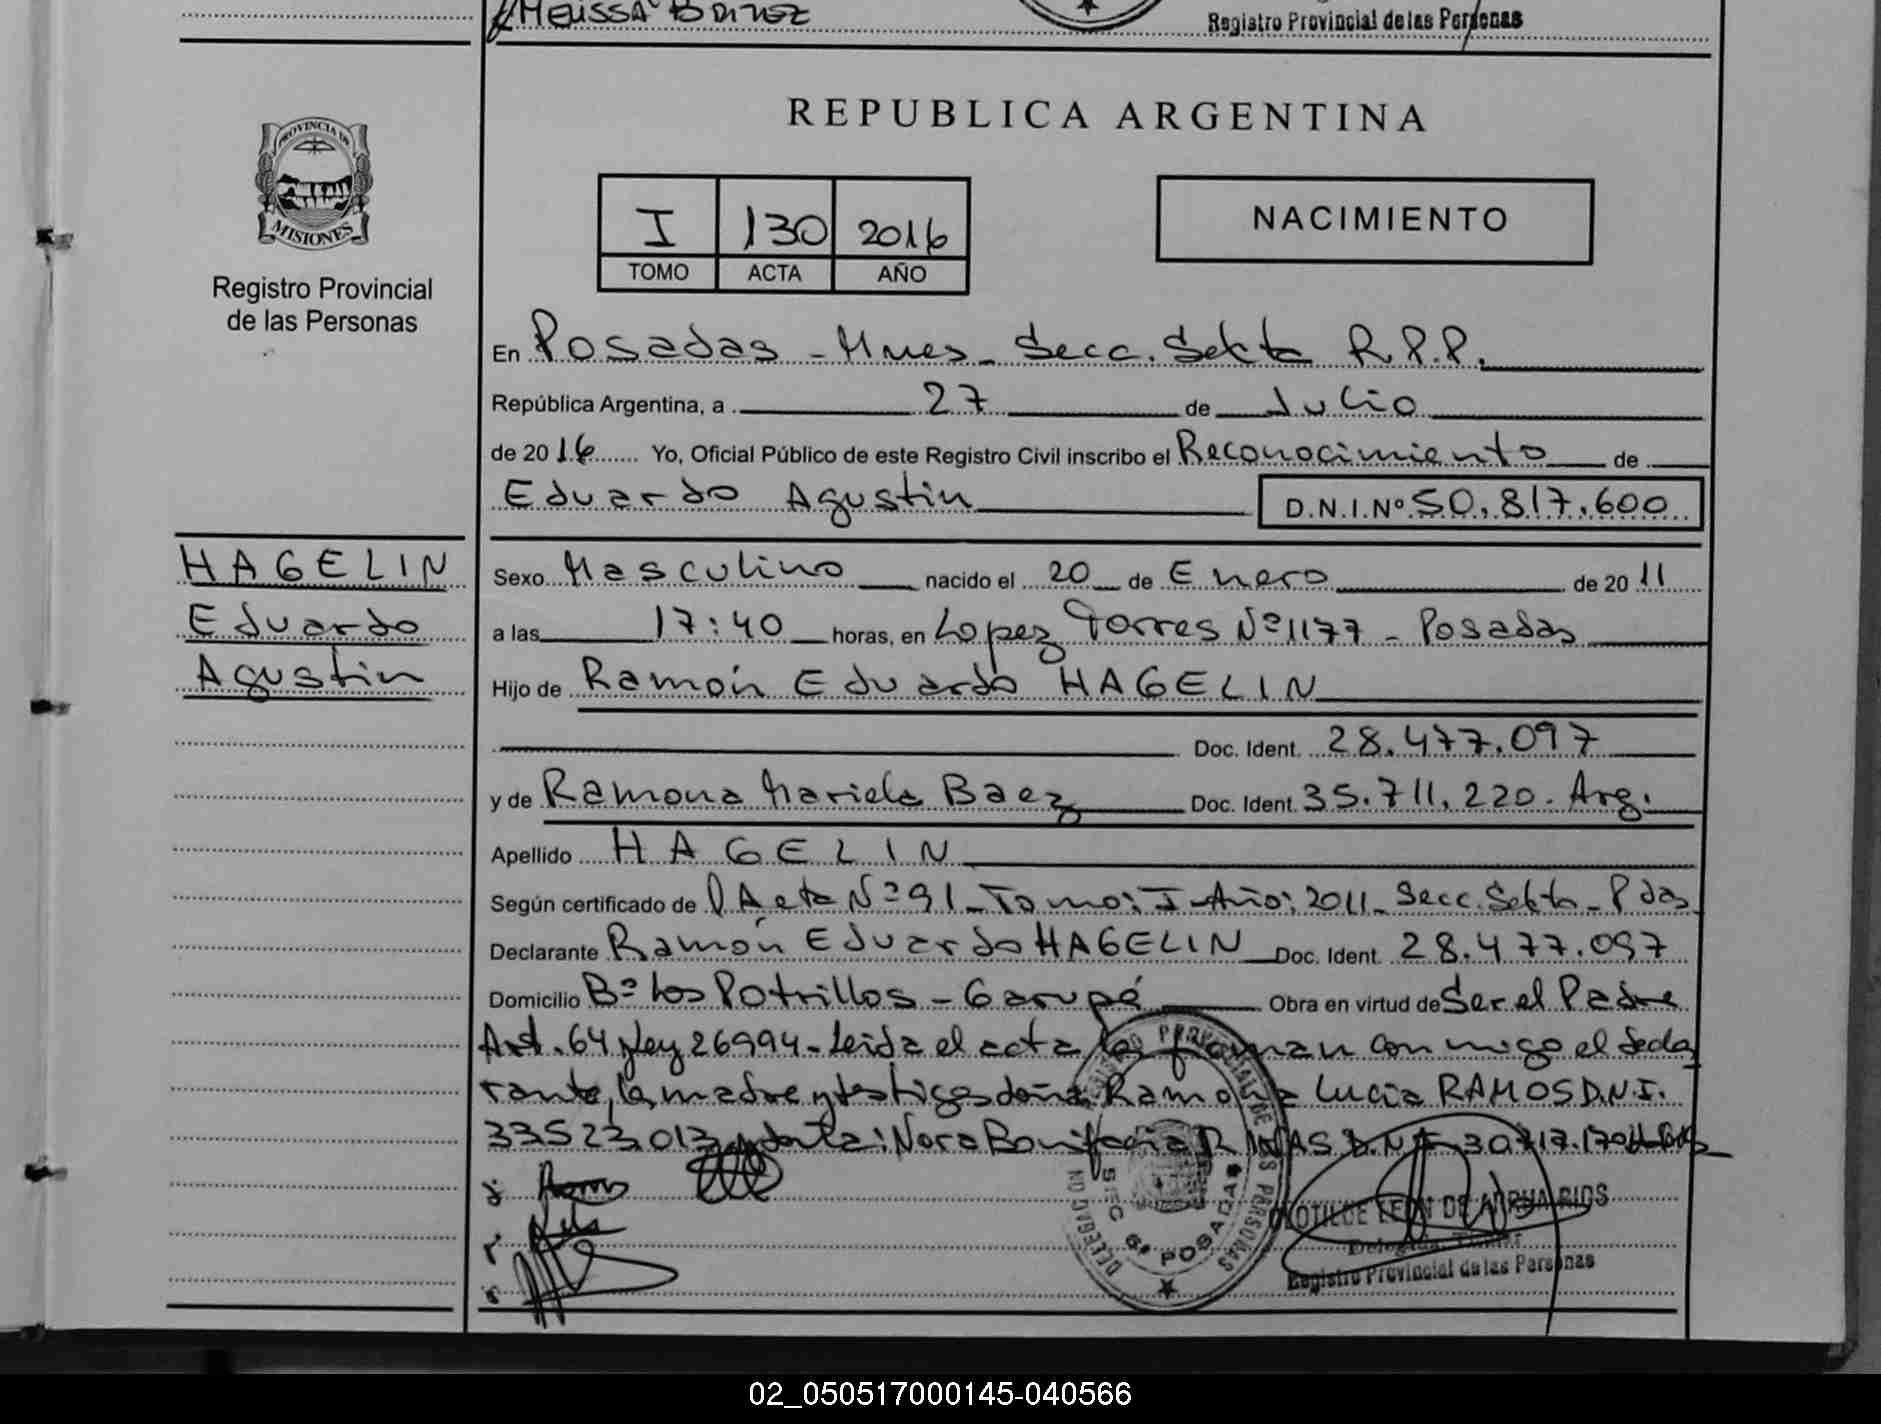 MELISSA BRITEZ
Registro Provincial de las Personas
PROVINCIA DE
MISIONES
Registro Provincial
de las Personas
REPUBLICA ARGENTINA
I 130 2016
TOMO ACTA AÑO
NACIMIENTO
En Posadas - Mnes - Secc. Sexta R.P.P.
República Argentina, a 27 de Julio
de 2016 Yo, Oficial Público de este Registro Civil inscribo el Reconocimiento de
Eduardo Agustin D.N.I. Nº 50.817.600
HAGELIN
Eduardo
Agustin
Sexo Masculino nacido el 20 de Enero de 2011
a las 17:40 horas, en Lopez Torres Nº 1177 - Posadas
Hijo de Ramón Eduardo HAGELIN
Doc. Ident. 28.477.097
y de Ramona Mariela Baez Doc. Ident. 35.711.220. Arg.
Apellido HAGELIN
Según certificado de Acta Nº 91 - Tomo: I - Año: 2011 - Secc. Sexta - Pdas.
Declarante Ramón Eduardo HAGELIN Doc. Ident. 28.477.097
Domicilio Bº Los Potrillos - Garupá Obra en virtud de Ser el Padre
Art. 64 Ley 26994 - Leida el acta la firman conmigo el decla
rante, la madre y testigos doña: Ramona Lucia RAMOS D.N.I.
33523.013 Nora Bonifacia D.N.I 30.717.170
REGISTRO PROVINCIAL DE LAS PERSONAS
SECC 6ª POSADAS
CLOTILDE LEON DE RIOS
Registro Provincial de las Personas
02_050517000145-040566